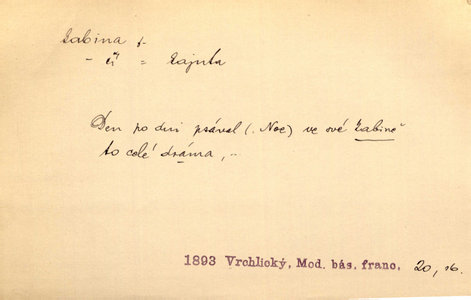 kabina f.
- ů = kajuta
Den po dni psával (. Noe) ve své kabině
to celé dráma, ..
1893 Vrchlický, Mod. bás. franc. 20, 16.